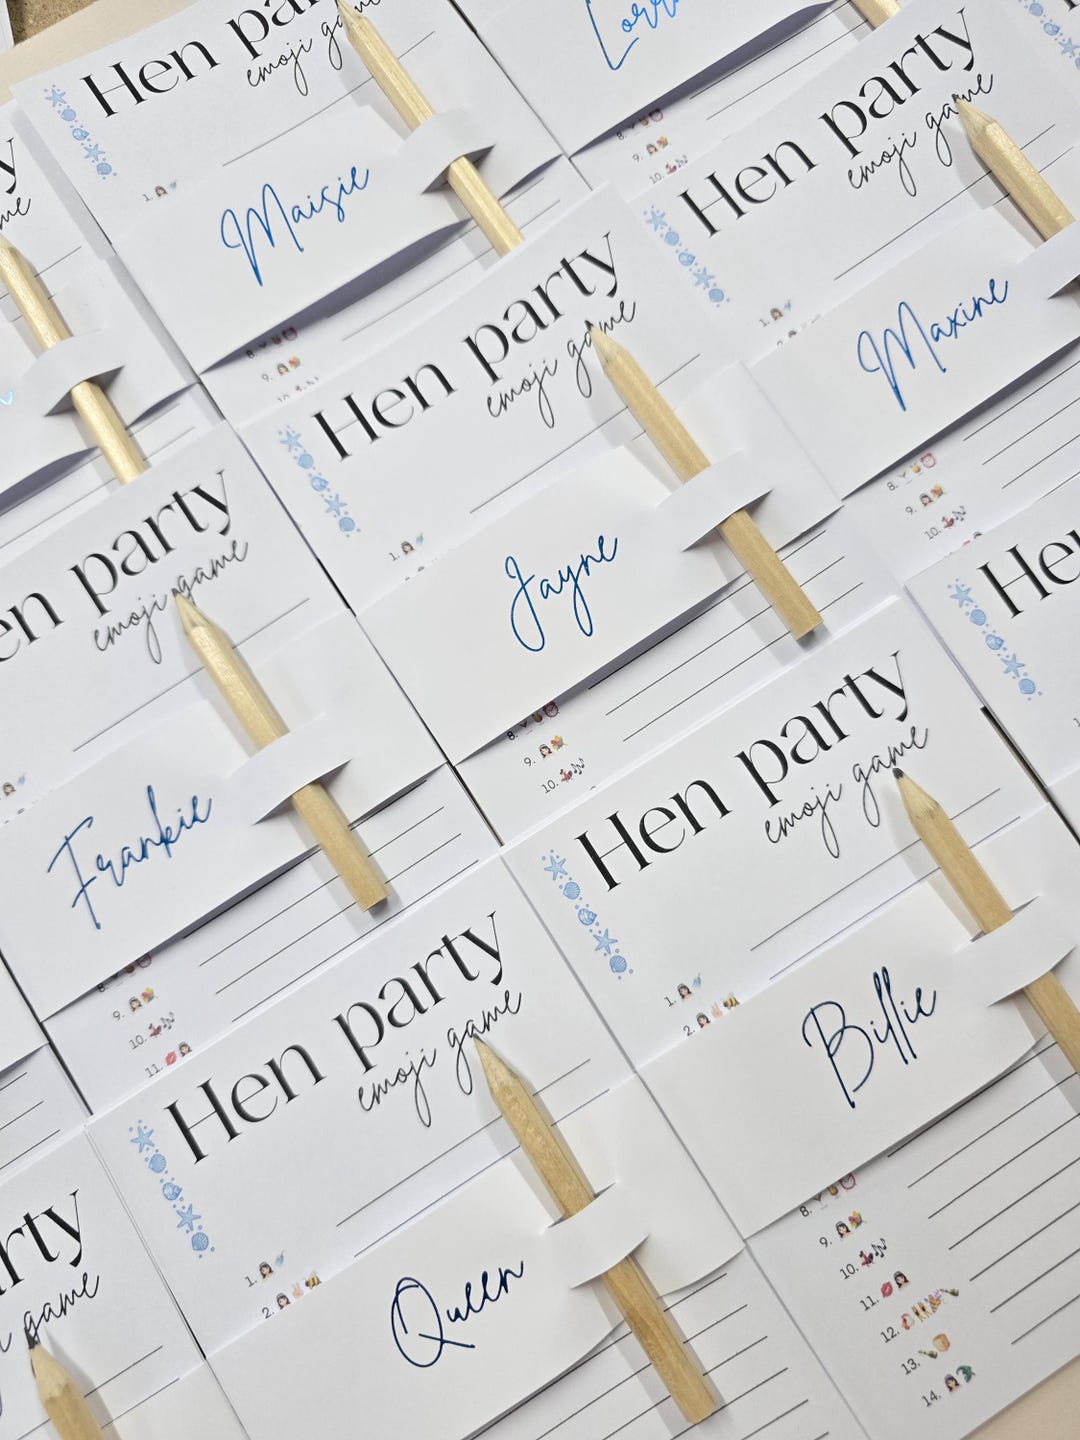 Hen party
emoji game
1.
Maisie
8.
9.
10.
Hen party
emoji game
1.
Maxine
8.
9.
10.
Hen party
emoji game
1.
Jayne
8.
9.
10.
party
emoji game
Frankie
8.
9.
10.
11.
Hen party
emoji game
1.
2.
Billie
8.
9.
10.
11.
12.
13.
14.
Hen party
emoji game
1.
2.
Queen
game